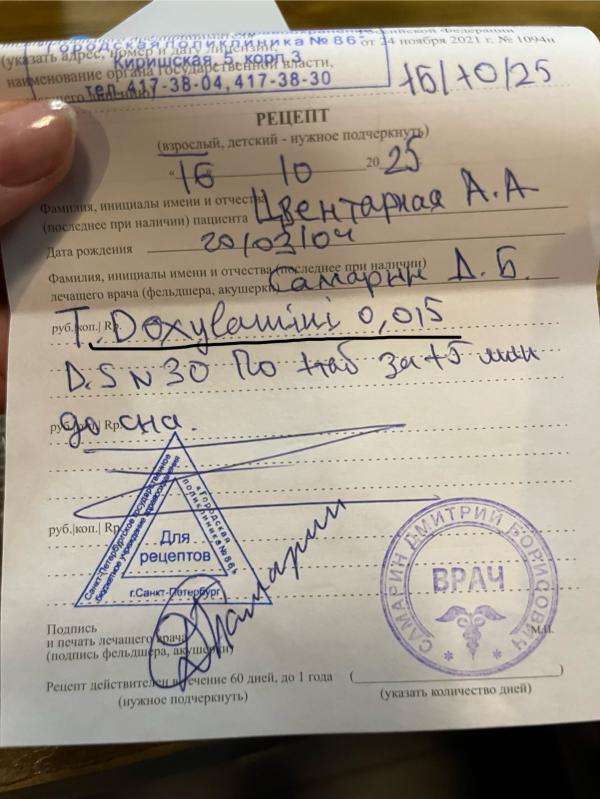 Российской Федерации
(указать адрес, номер и дату лицензии, от 24 ноября 2021 г. № 1094н
Городская поликлиника № 86
наименование органа государственной власти,
Киришская, 5, корп.
тел. 417-38-04, 417-38-30
16/10/25
РЕЦЕПТ
(взрослый, детский - нужное подчеркнуть)
« 16 » 10 20 25
Фамилия, инициалы имени и отчества
(последнее при наличии) пациента Цвентарная А.А
Дата рождения 20/03/04
Фамилия, инициалы имени и отчества (последнее при наличии)
лечащего врача (фельдшера, акушерки) Самарин Д.Б.
руб.|коп.| Rp. T. Doxylamini 0,015
D.S N 30 По 1 таб за 15 мин
руб.|коп.| Rp. до сна.
руб.|коп.| Rp.
Санкт-Петербургское государственное
бюджетное учреждение здравоохранения
«Городская
поликлиника № 86»
Для
рецептов
г.Санкт-Петербург
САМАРИН ДМИТРИЙ БОРИСОВИЧ
ВРАЧ
Самарин
Подпись
и печать лечащего врача М.П.
(подпись фельдшера, акушерки)
Рецепт действителен в течение 60 дней, до 1 года (
)
(нужное подчеркнуть) (указать количество дней)